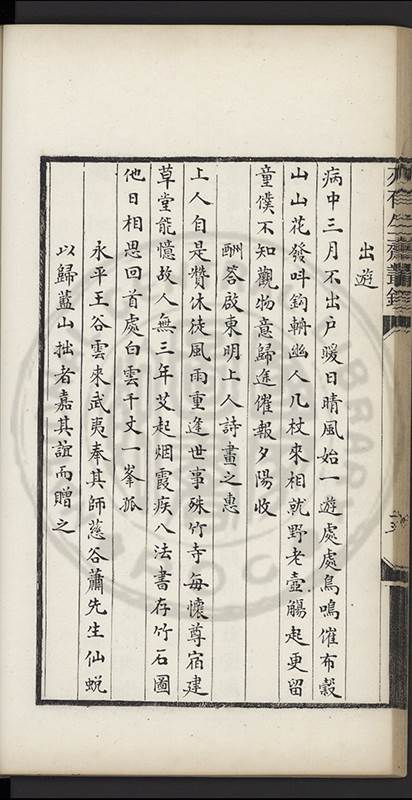 出遊
病中三月不出戶暖日晴風始一遊處處鳥鳴催布穀
山山花發呌鉤輈幽人几杖來相就野老壺觴起更留
童僕不知觀物意歸途催報夕陽收
酬答啟東明上人詩畫之惠
上人自是贊休徒風雨重逢世事殊竹寺每懷尊宿建
草堂能憶故人無三年艾起烟霞疾八法書存竹石圖
他日相思回首處白雲千丈一峯孤
永平王谷雲來武夷奉其師慈谷蕭先生仙蛻
以歸藍山拙者嘉其誼而贈之